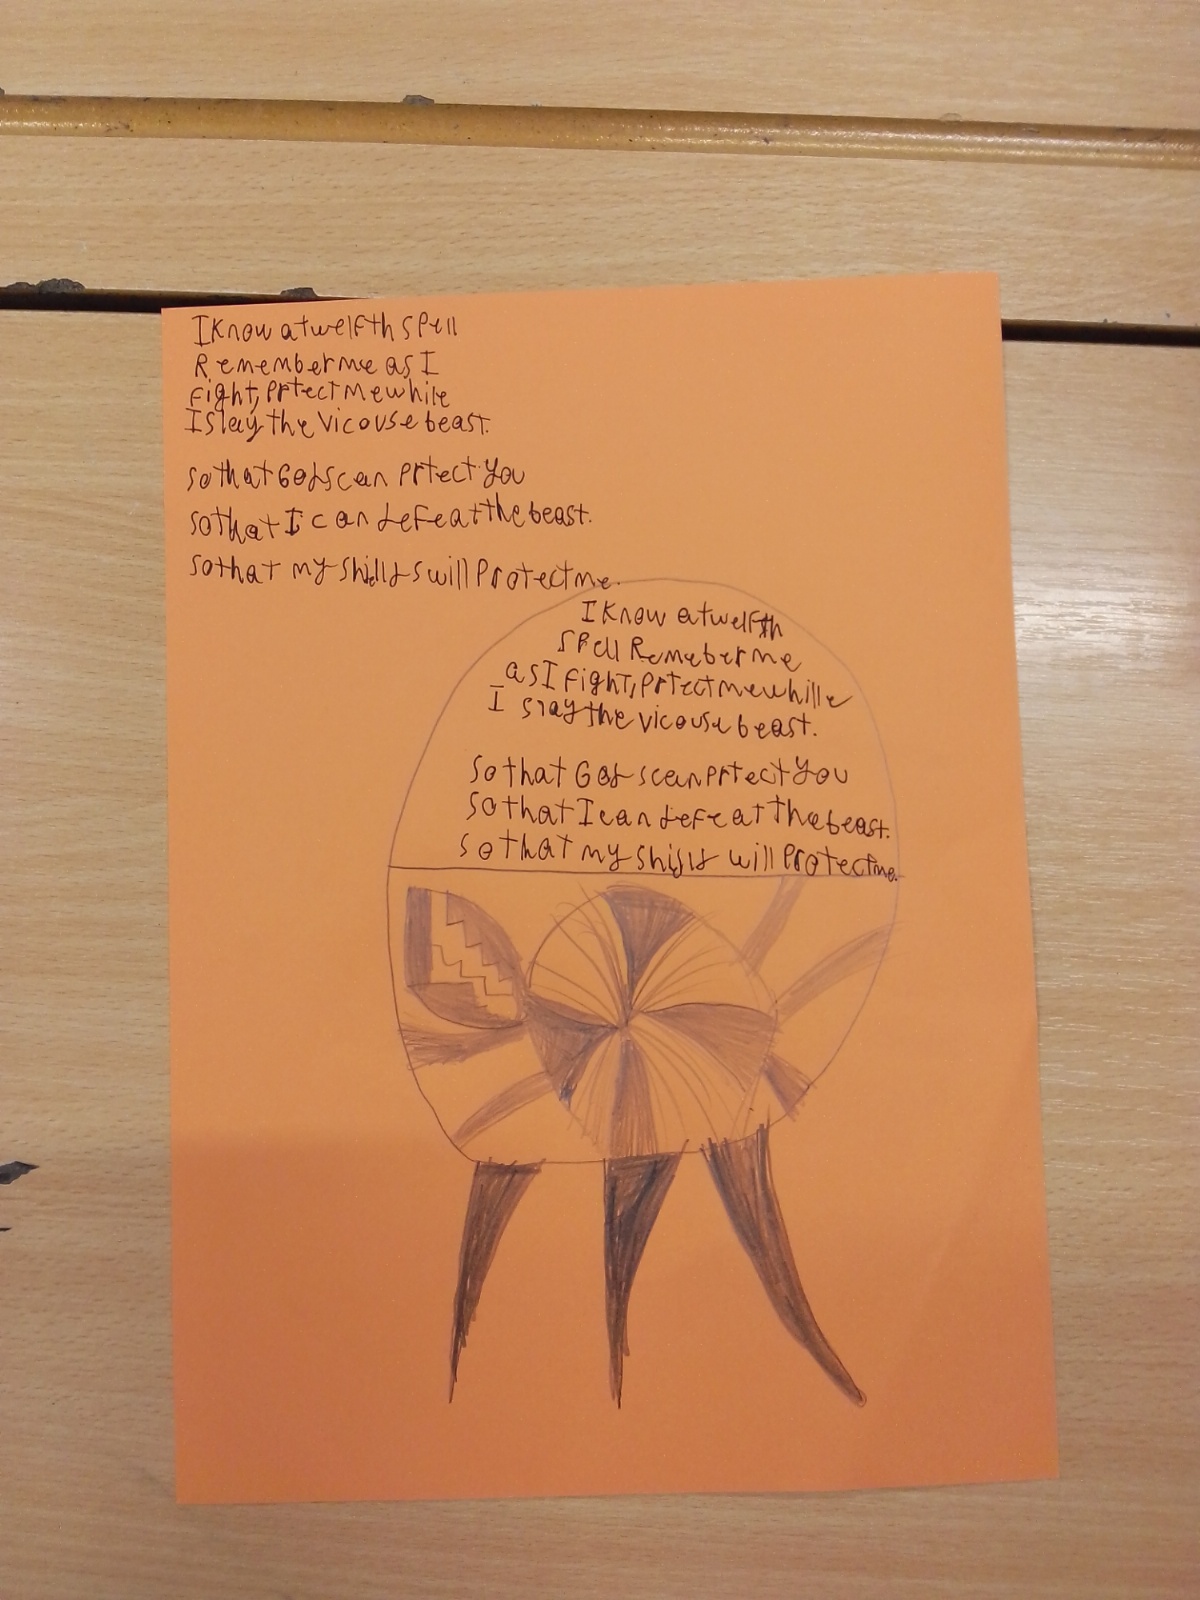 I Know a twelfth spell
Remember me as I
fight, prtect me while
I slay the vicouse beast.
so that Gods can prtect you
so that I can defeat the beast.
so that my shilds will Protect me.
I Know a twelfth
spell Remeber me
as I fight, prtect me whille
I slay the vicouse beast.
So that Gods can prtect you
so that I can defeat the beast.
so that my shilds will protect me.